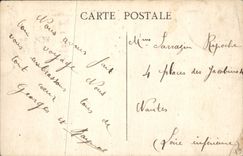 CARTE POSTALE
Nous avons fait
bon voyage. Nous
vous embrassons tous de
tout cœur
Georges et
Mme Sarrazin
4 place des Jacobins
Nantes
(Loire inférieure)